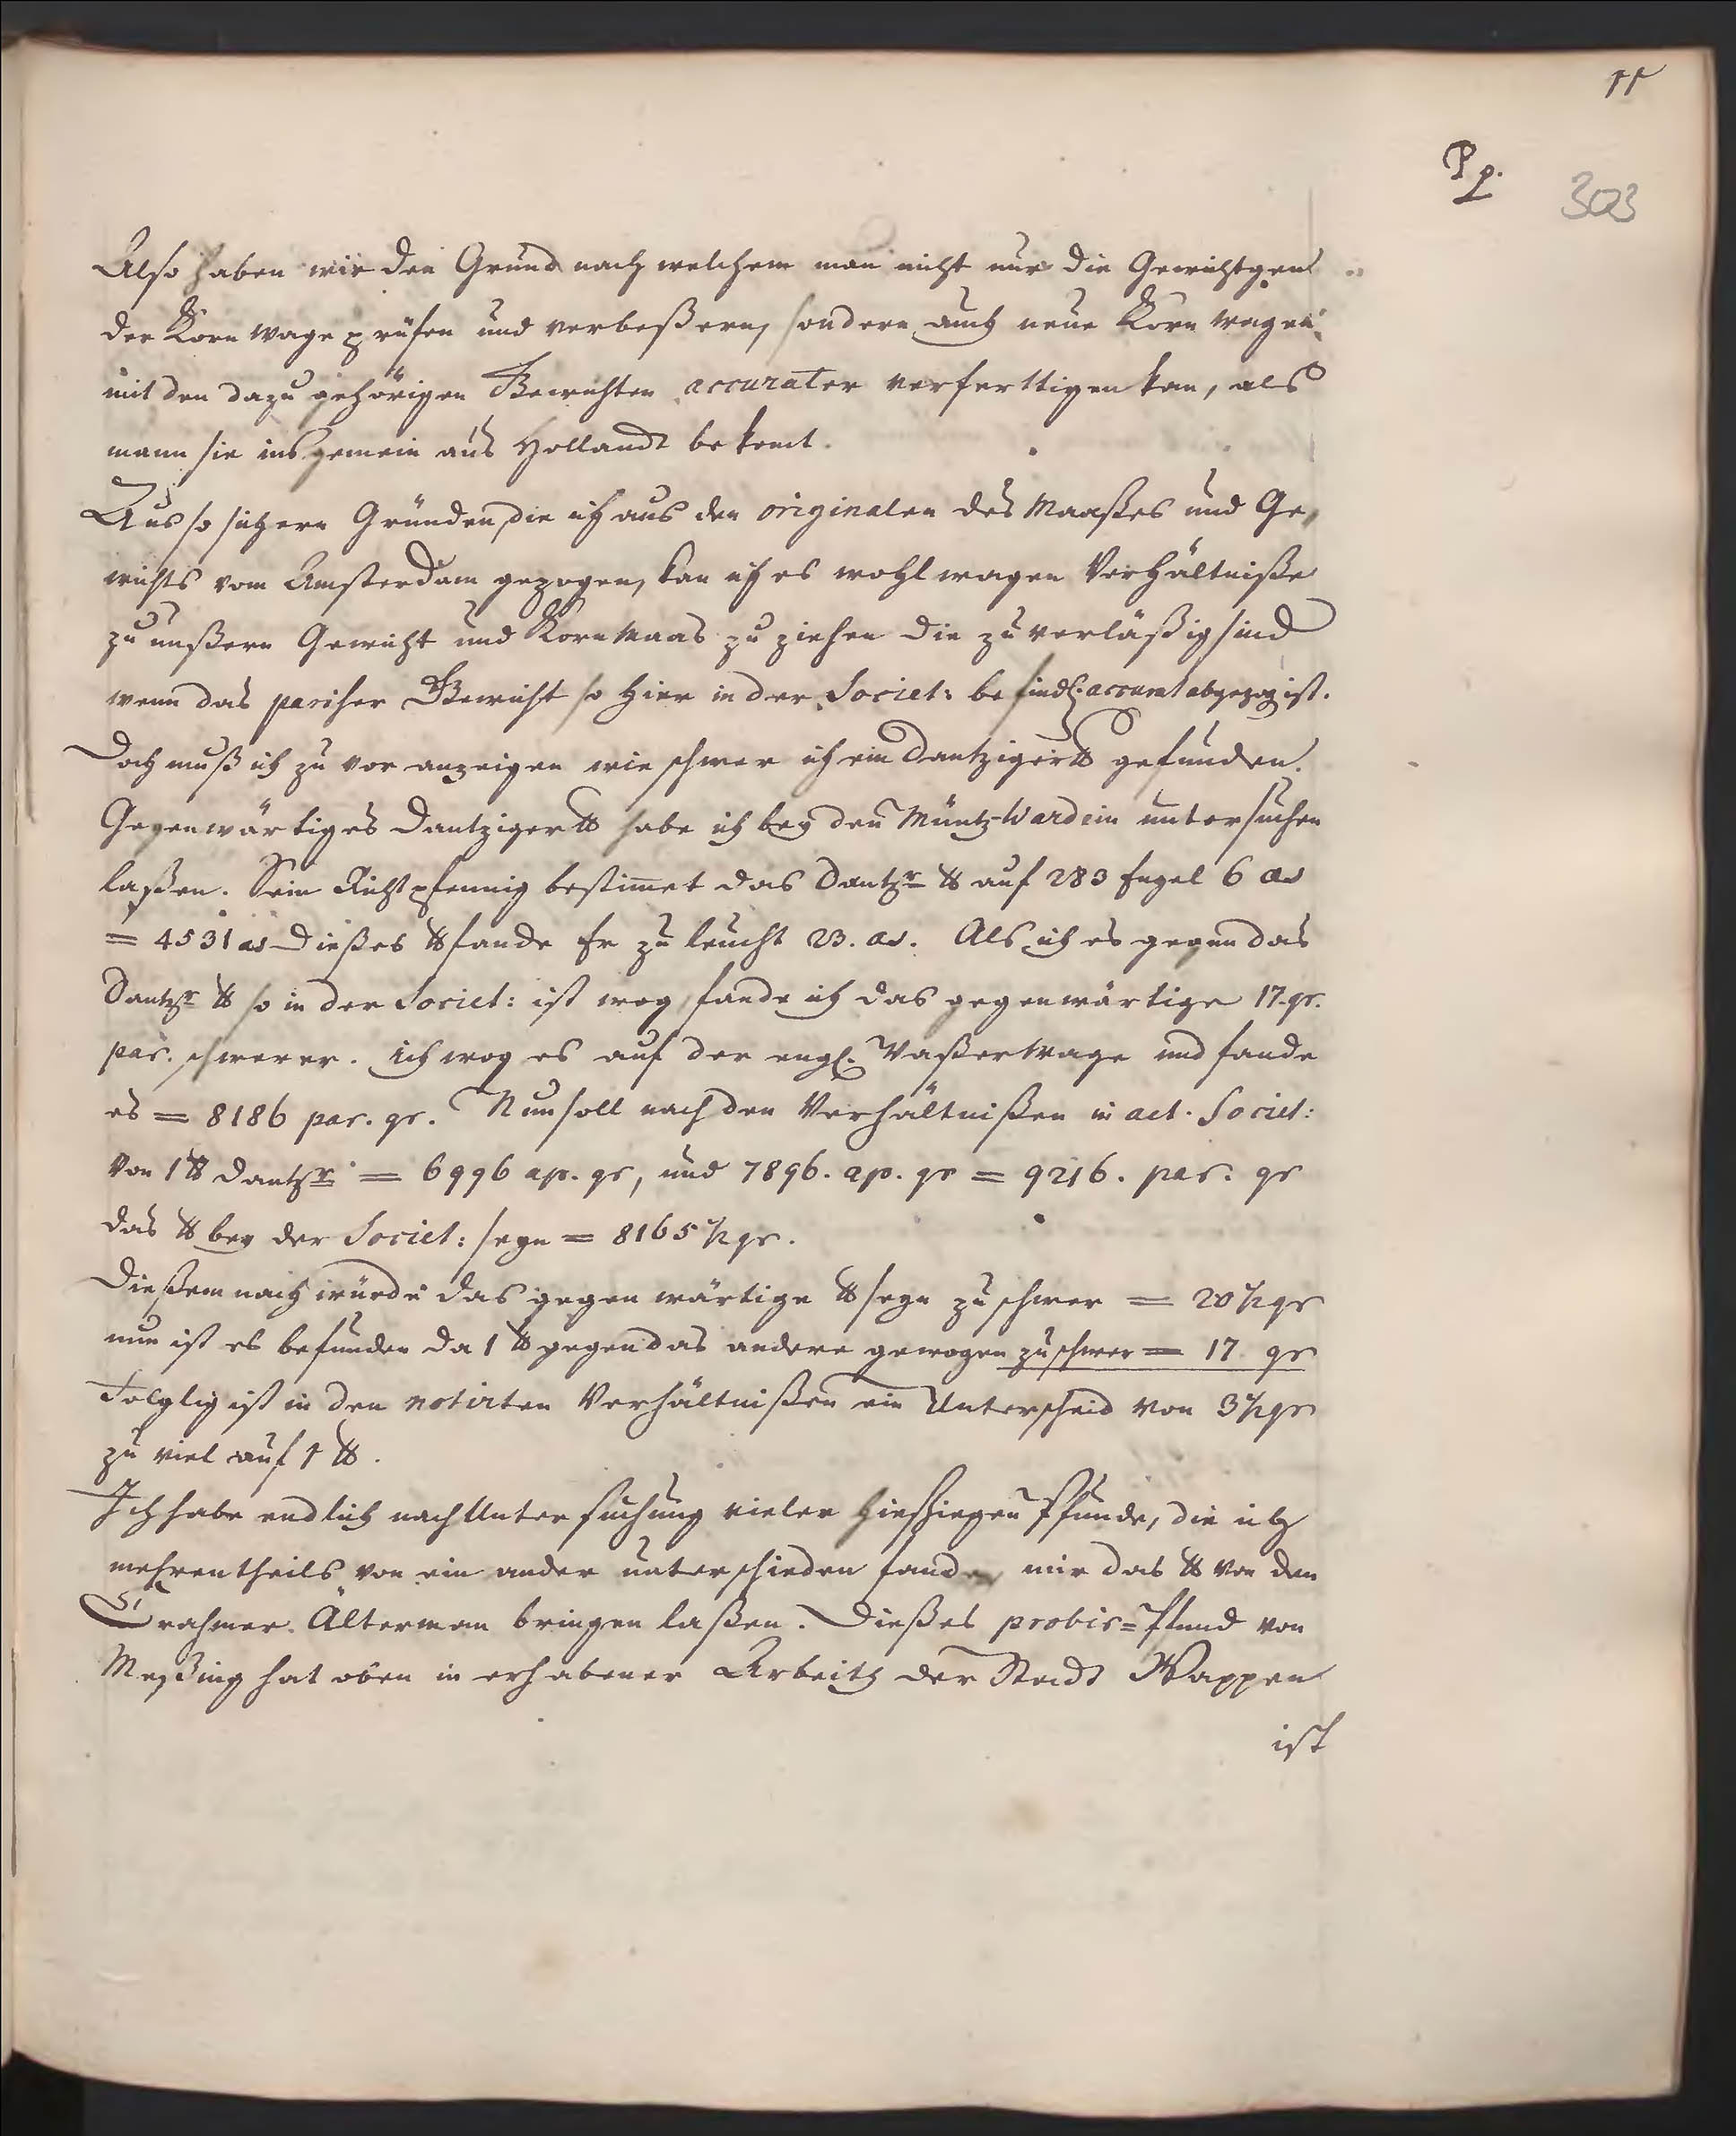 11
Pp.
303
Also haben wir den Grund nach welchem man nicht nur die Gewichtgen
der Korn wage prüfen und verbeßern, sondern auch neue Korn wagen
mit den dazu gehörigen Gewichten accurater verferttigen kan, als
mann sie ins gemein aus Hollandt bekomt.
Aus so sichern Gründen, die ich aus den originalen des Maaßes und Ge,
wichts vom Amsterdam gezogen, kan ich es wohl wagen Verhältniße
zu unßern Gewicht und Korn Maas zu ziehen die zuverläßig sind
wenn das pariser Gewicht so hier in der Societ: befindl: accurat abgezog ist.
Doch muß ich zu vor anzeigen wie schwer ich ein Dantziger ℔ gefunden.
Gegenwärtiges Dantziger ℔ habe ich bey den Müntz-Wardein untersuchen
laßen. Sein Richtpfennig bestimet das Dantzr ℔ auf 283 Engel 6 as
= 4531 as Dießes ℔ fande Er zu leucht 23. as. Als ich es gegen das
Dantzr ℔ so in der Societ: ist wog, fande ich das gegenwärtige 17. gr.
par. schwerer. Ich wog es auf der engl. Waßerwage und fande
es = 8186 par. gr. Nun soll nach den Verhältnißen in act. Societ:
von 1 ℔ Dantzr = 6996 ap. gr, und 7896. ap. gr = 9216. par. gr
das ℔ bey der Societ: seyn = 8165 1/2 gr.
Dießem nach würde das gegenwärtige ℔ seyn zu schwer = 20 1/2 gr
nun ist es befunden da 1 ℔ gegen das andere gewogen zu schwer = 17 gr
Folglig ist in den notirten Verhältnißen ein Unterscheid von 3 1/2 gr
zu viel auf 1 ℔.
Ich habe endlich nach Untersuchung vieler hiesiegen Pfunde, die ich
mehrentheils von ein ander unterschieden fand, mir das ℔ von dem
Crahmer Älterman bringen laßen. Dießes probir=Pfund von
Meßing hat oben in erhabener Arbeit der Stadt Wappen
ist